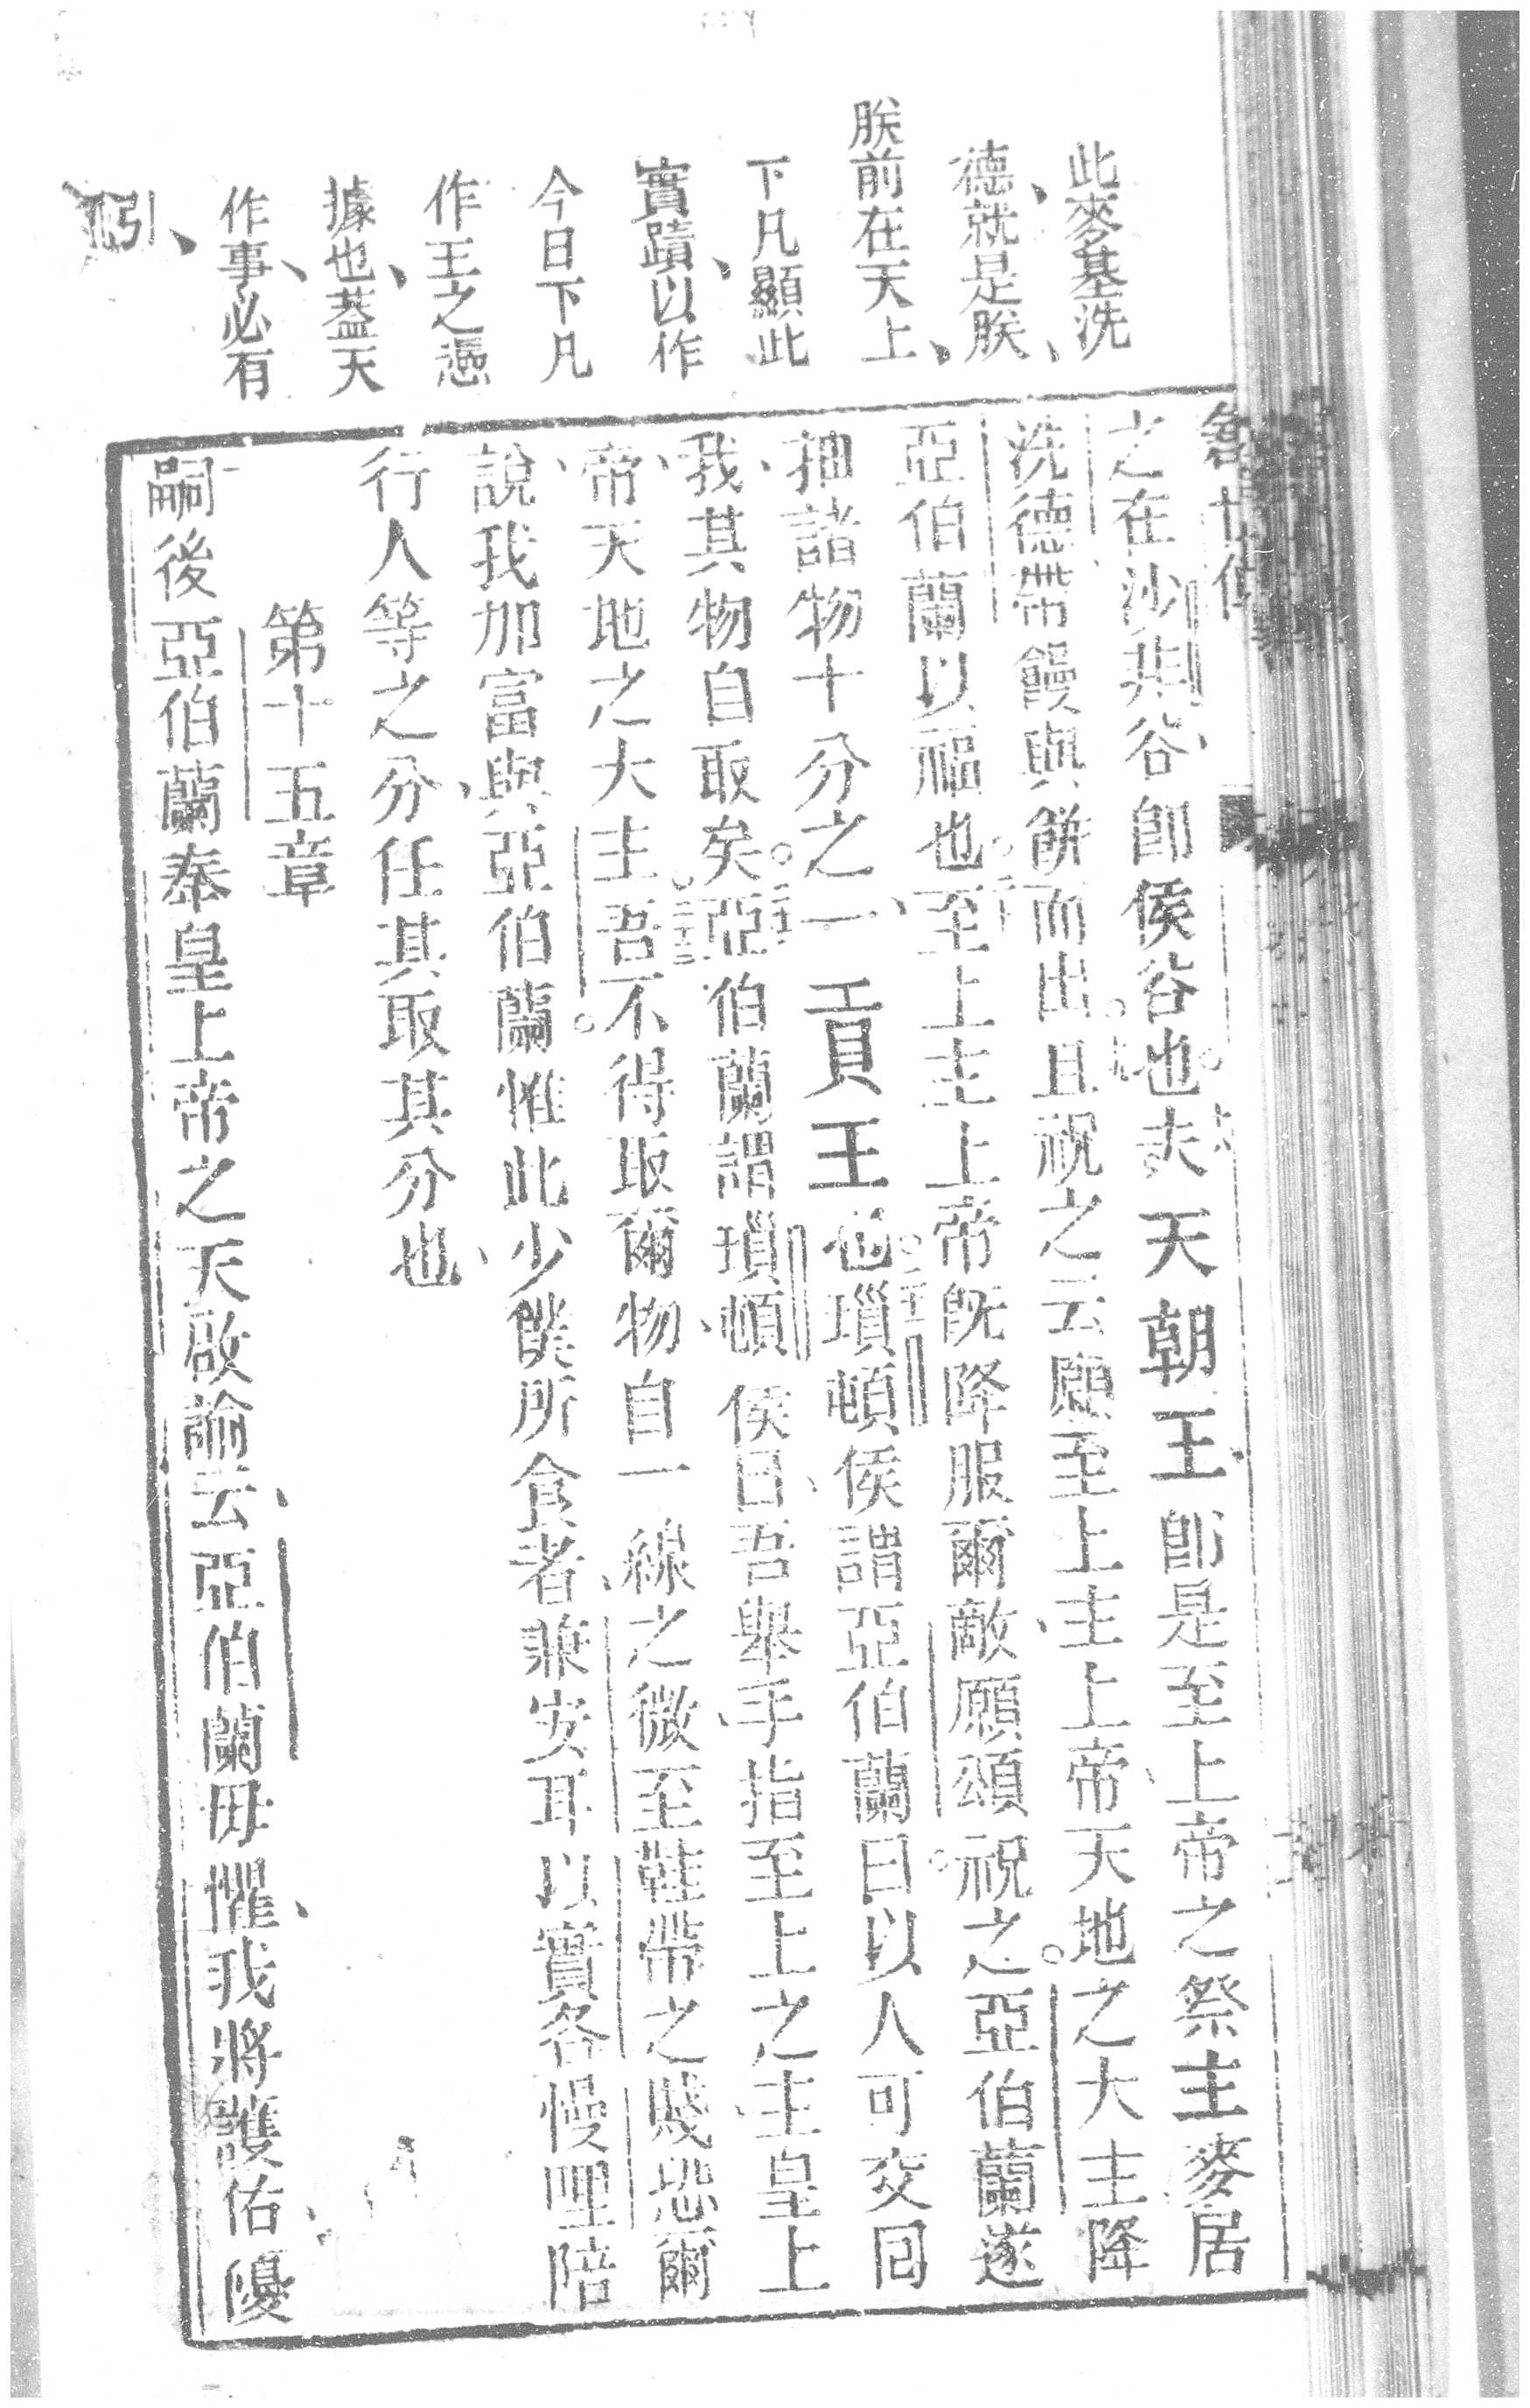 此麥基洗
德就是朕
朕前在天上
下凡顯此
實蹟以作
今日下凡
作王之憑
據也蓋天
作事必有
引
之在沙非谷即侯谷也夫天朝王即是至上帝之祭主麥居
洗德帶饅與餅而出且祝之云願至上主上帝天地之大主降
亞伯蘭以福也至上主上帝既降服爾敵願頌祝之亞伯蘭遂
抽諸物十分之一貢王也瑣頓侯謂亞伯蘭曰以人可交囘
我其物自取矣亞伯蘭謂瑣頓侯曰吾舉手指至上之主皇上
帝天地之大主吾不得取爾物自一線之微至鞋帶之賤恐爾
說我加富與亞伯蘭惟此少僕所食者兼安耳以實各慢哩陪
行人等之分任其取其分也
第十五章
嗣後亞伯蘭奉皇上帝之天啟諭云亞伯蘭毋懼我將護佑優